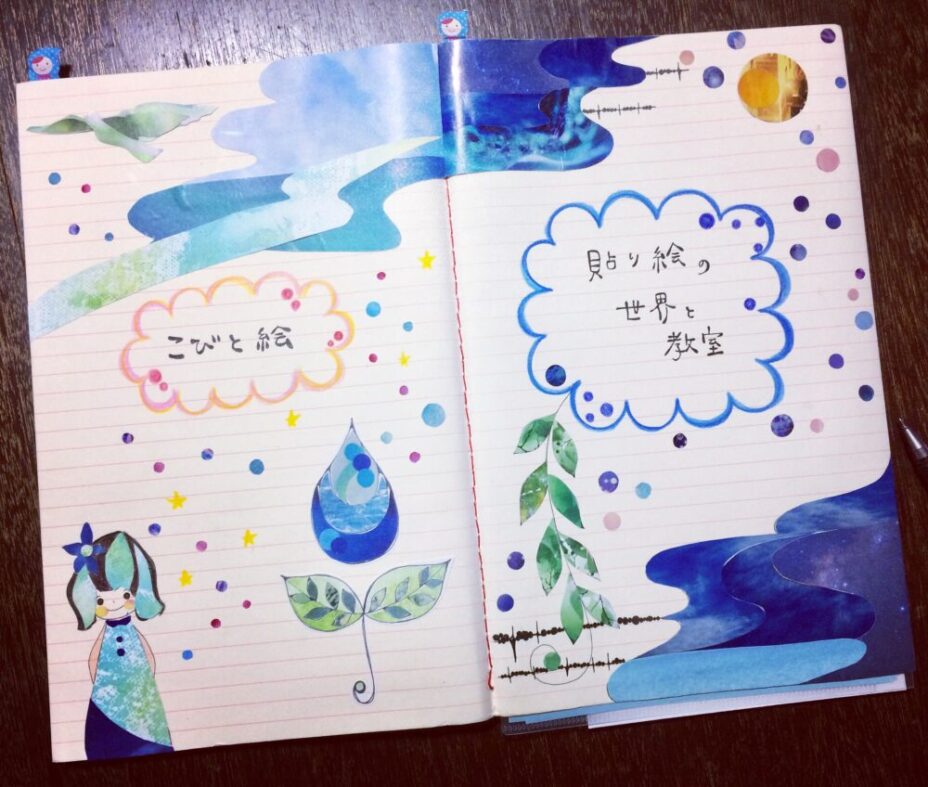 こびと絵
貼り絵の
世界と
教室